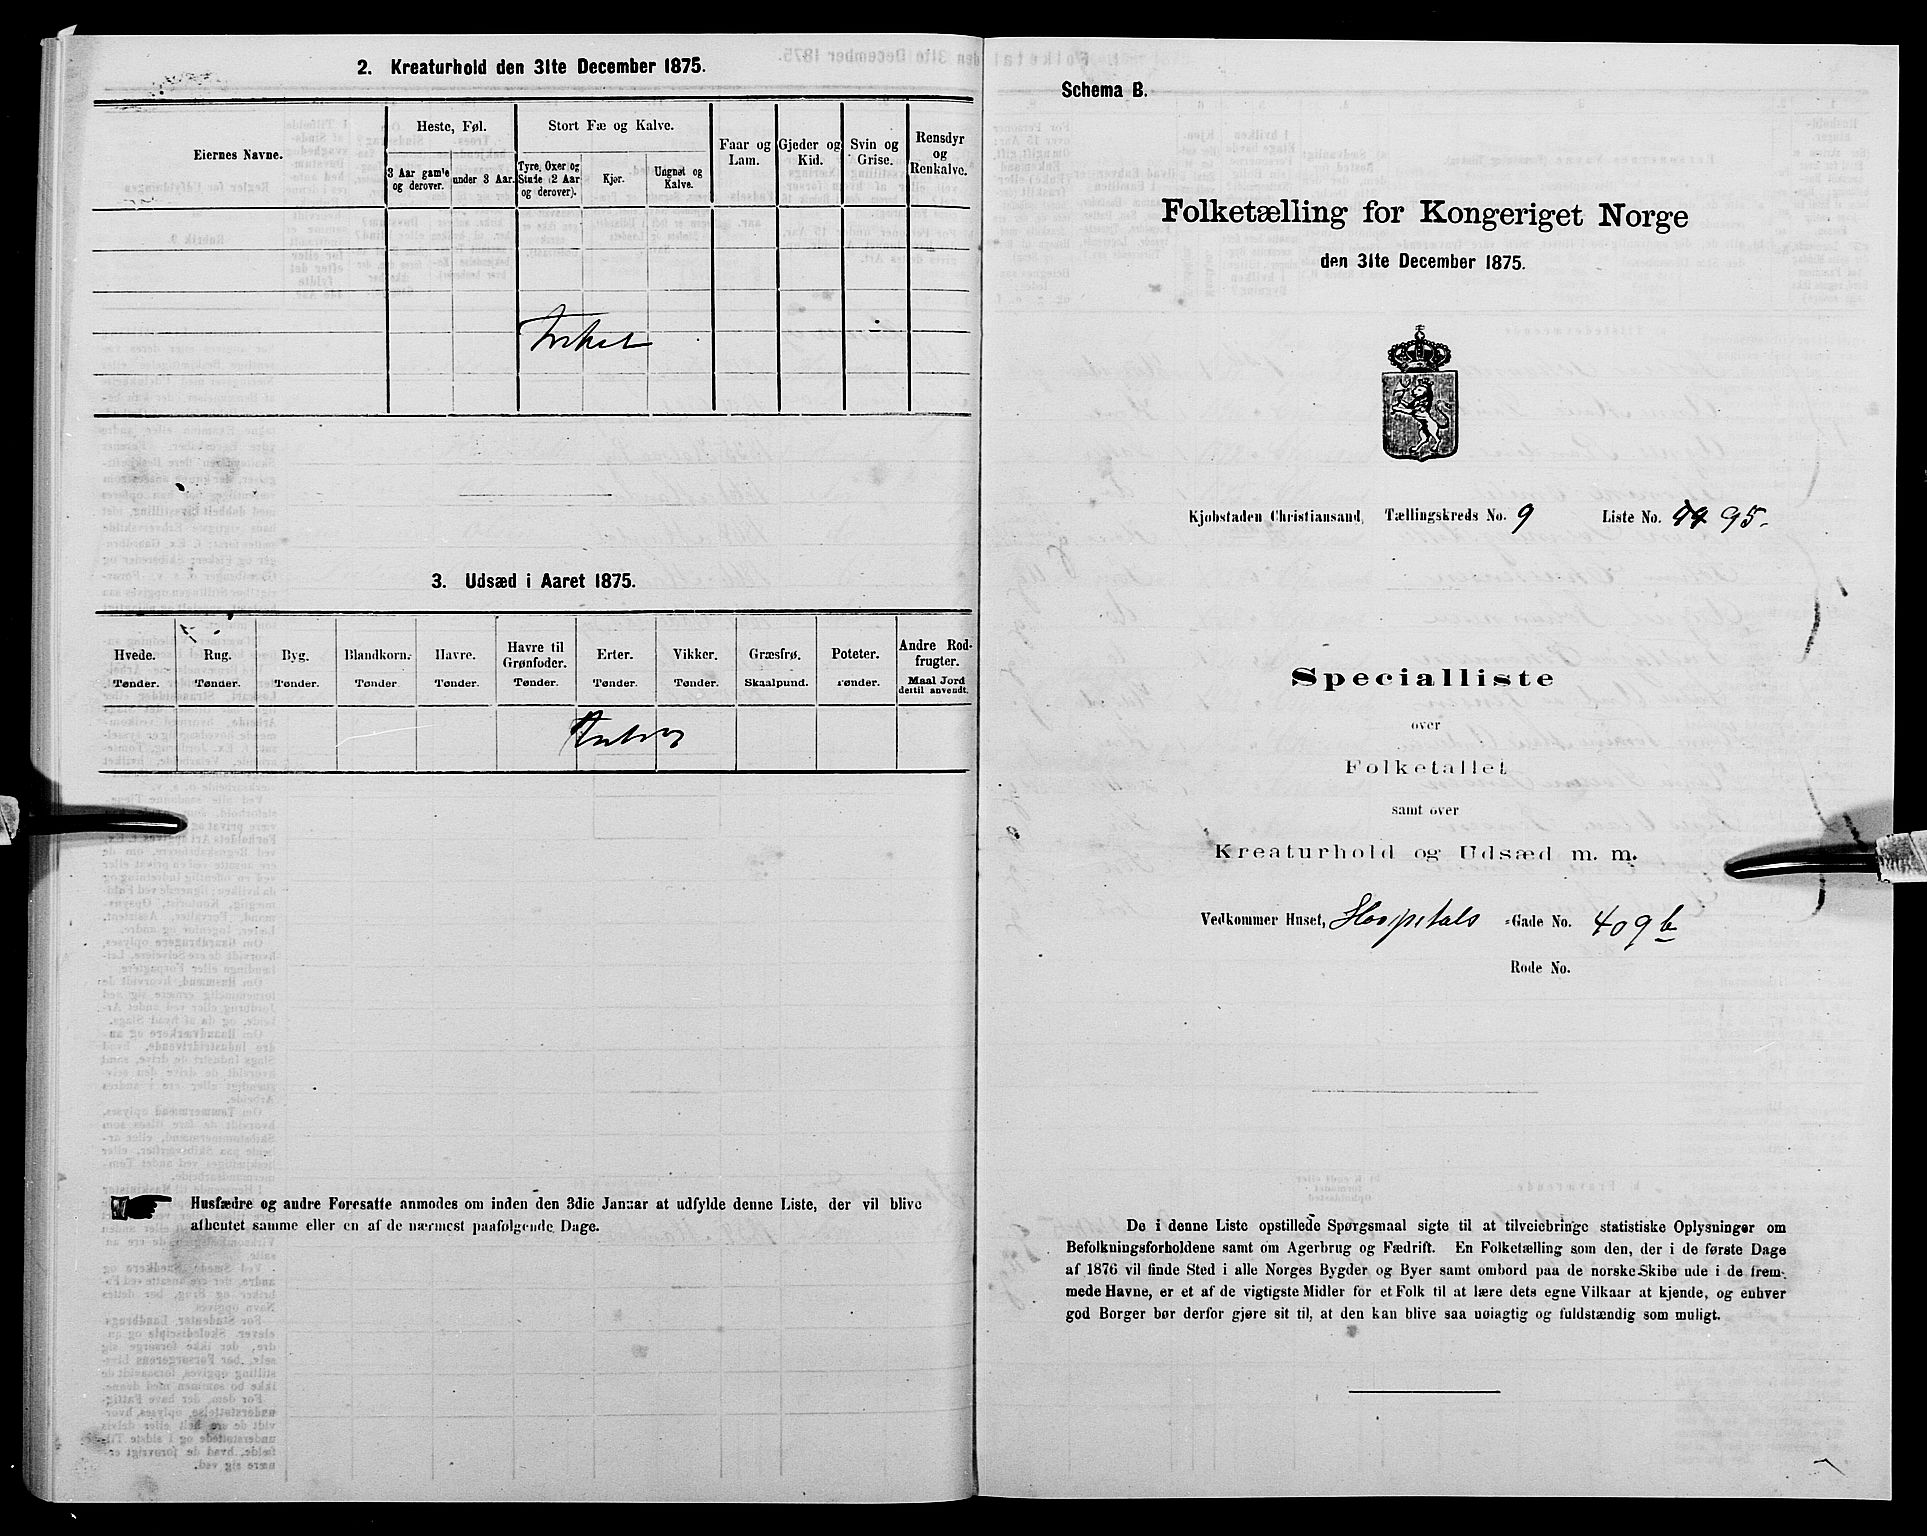 2. Kreaturhold den 31te December 1875.
Eiernes Navne.
Heste, Føl.
3 Aar gam'e og derover.
under 3 Aar.
Stort Fæ og Kalve.
Tyre, Oxer og Stude (2 Aar og derover).
Kjør.
Ungnøt og Kalve.
Faar og Lam.
Gjeder og Kid.
Svin og Grise.
Rensdyr og Renkalve.
3. Udsæd i Aaret 1875.
Hvede. Tønder.
Rug. Tønder.
Byg. Tønder.
Blandkorn. Tønder
Havre. Tønder.
Havre til Grønfoder. Tønder.
Erter. Tønder.
Vikker. Tønder.
Græsfrø. Skaalpund.
Poteter. Tønder.
Andre Rodfrugter. Maal Jord dertil anvendt.
Husfædre og andre Foresatte anmodes om inden den 3die Januar at udfylde denne Liste, der vil blive
afhentet samme eller en af de nærmest paafølgende Dage.
Schema B.
Folketælling for Kongeriget Norge
den 31te December 1875.
Kjøbstaden Christiansand, Tællingskreds No. 9 Liste No. 95.
Specialliste
over
Folketallet
samt over
Kreaturhold og Udsæd m. m.
Vedkommer Huset, Hospitals -Gade No. 409b
Rode No.
De i denne Liste opstillede Spørgsmaal sigte til at tilveiebringe statistiske Oplysninger om
Befolkningsforholdene samt om Agerbrug og Fædrift. En Folketælling som den, der i de første Dage
af 1876 vil finde Sted i alle Norges Bygder og Byer samt ombord paa de norske Skibe ude i de frem-
mede Havne, er et af de vigtigste Midler for et Folk til at lære dets egne Vilkaar at kjende, og enhver
god Borger bør derfor gjøre sit til, at den kan blive saa nøiagtig og fuldstændig som muligt.